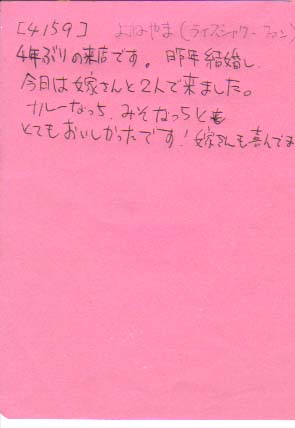 [4159] よねやま(ライスシャワーファン)
4年ぶりの来店です。昨年結婚し、
今日は嫁さんと2人で来ました。
カレーなっち、みそなっちとも
とてもおいしかったです!嫁さんも喜んでま